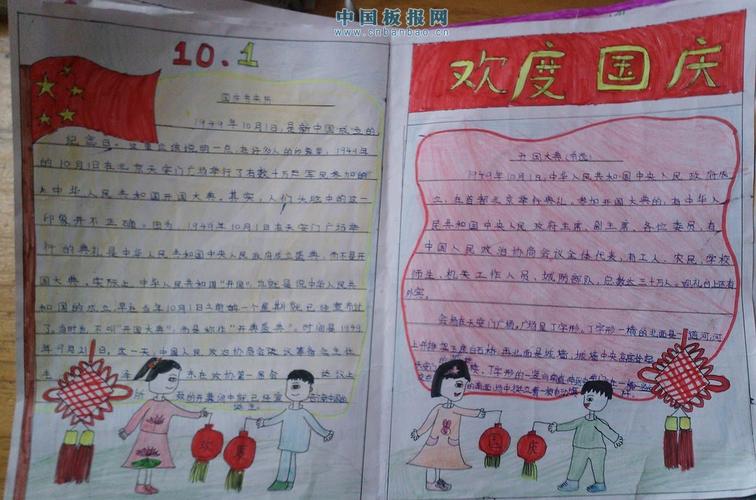 中国板报网
www.cnbanbao.cn
10.1
国庆节来历
1949年10月1日，是新中国成立的
纪念日。这里应该说明一点，在许多人的印象里，1949年
的10月1日在北京天安门广场举行了有数十万军民参加的
中华人民共和国开国大典。其实，人们头脑中的这一
印象并不正确。因为，1949年10月1日在天安门广场举
行的典礼是中华人民共和国中央人民政府成立盛典，而不是开
国大典。实际上，中华人民共和国"开国"，也就是说中华人民共
和国的成立，早在当年10月1日之前的一个星期就已经宣布过
了。当时也不叫"开国大典"，而是称作"开国盛典"。时间是1949
年9月21日。这一天，中国人民政治协商会议筹备会主任
在政协第一届会议上
的开幕词中就已经宣
欢度
欢度国庆
开国大典（节选）
1949年10月1日，中华人民共和国中央人民政府成
立，在首都北京举行典礼。参加开国大典的，有中华人
民共和国中央人民政府主席、副主席、各位委员，有
中国人民政治协商会议全体代表，有工人、农民、学校
师生、机关工作人员、城防部队，总数达三十万人。观礼台上还有
外宾。
会场在天安门广场。广场呈丁字形。丁字形一横的北面是一道河，河
上并排架着五座白石桥；再北面是城墙，城墙中央高高耸起
丁字形的一竖向南
的南面
国庆